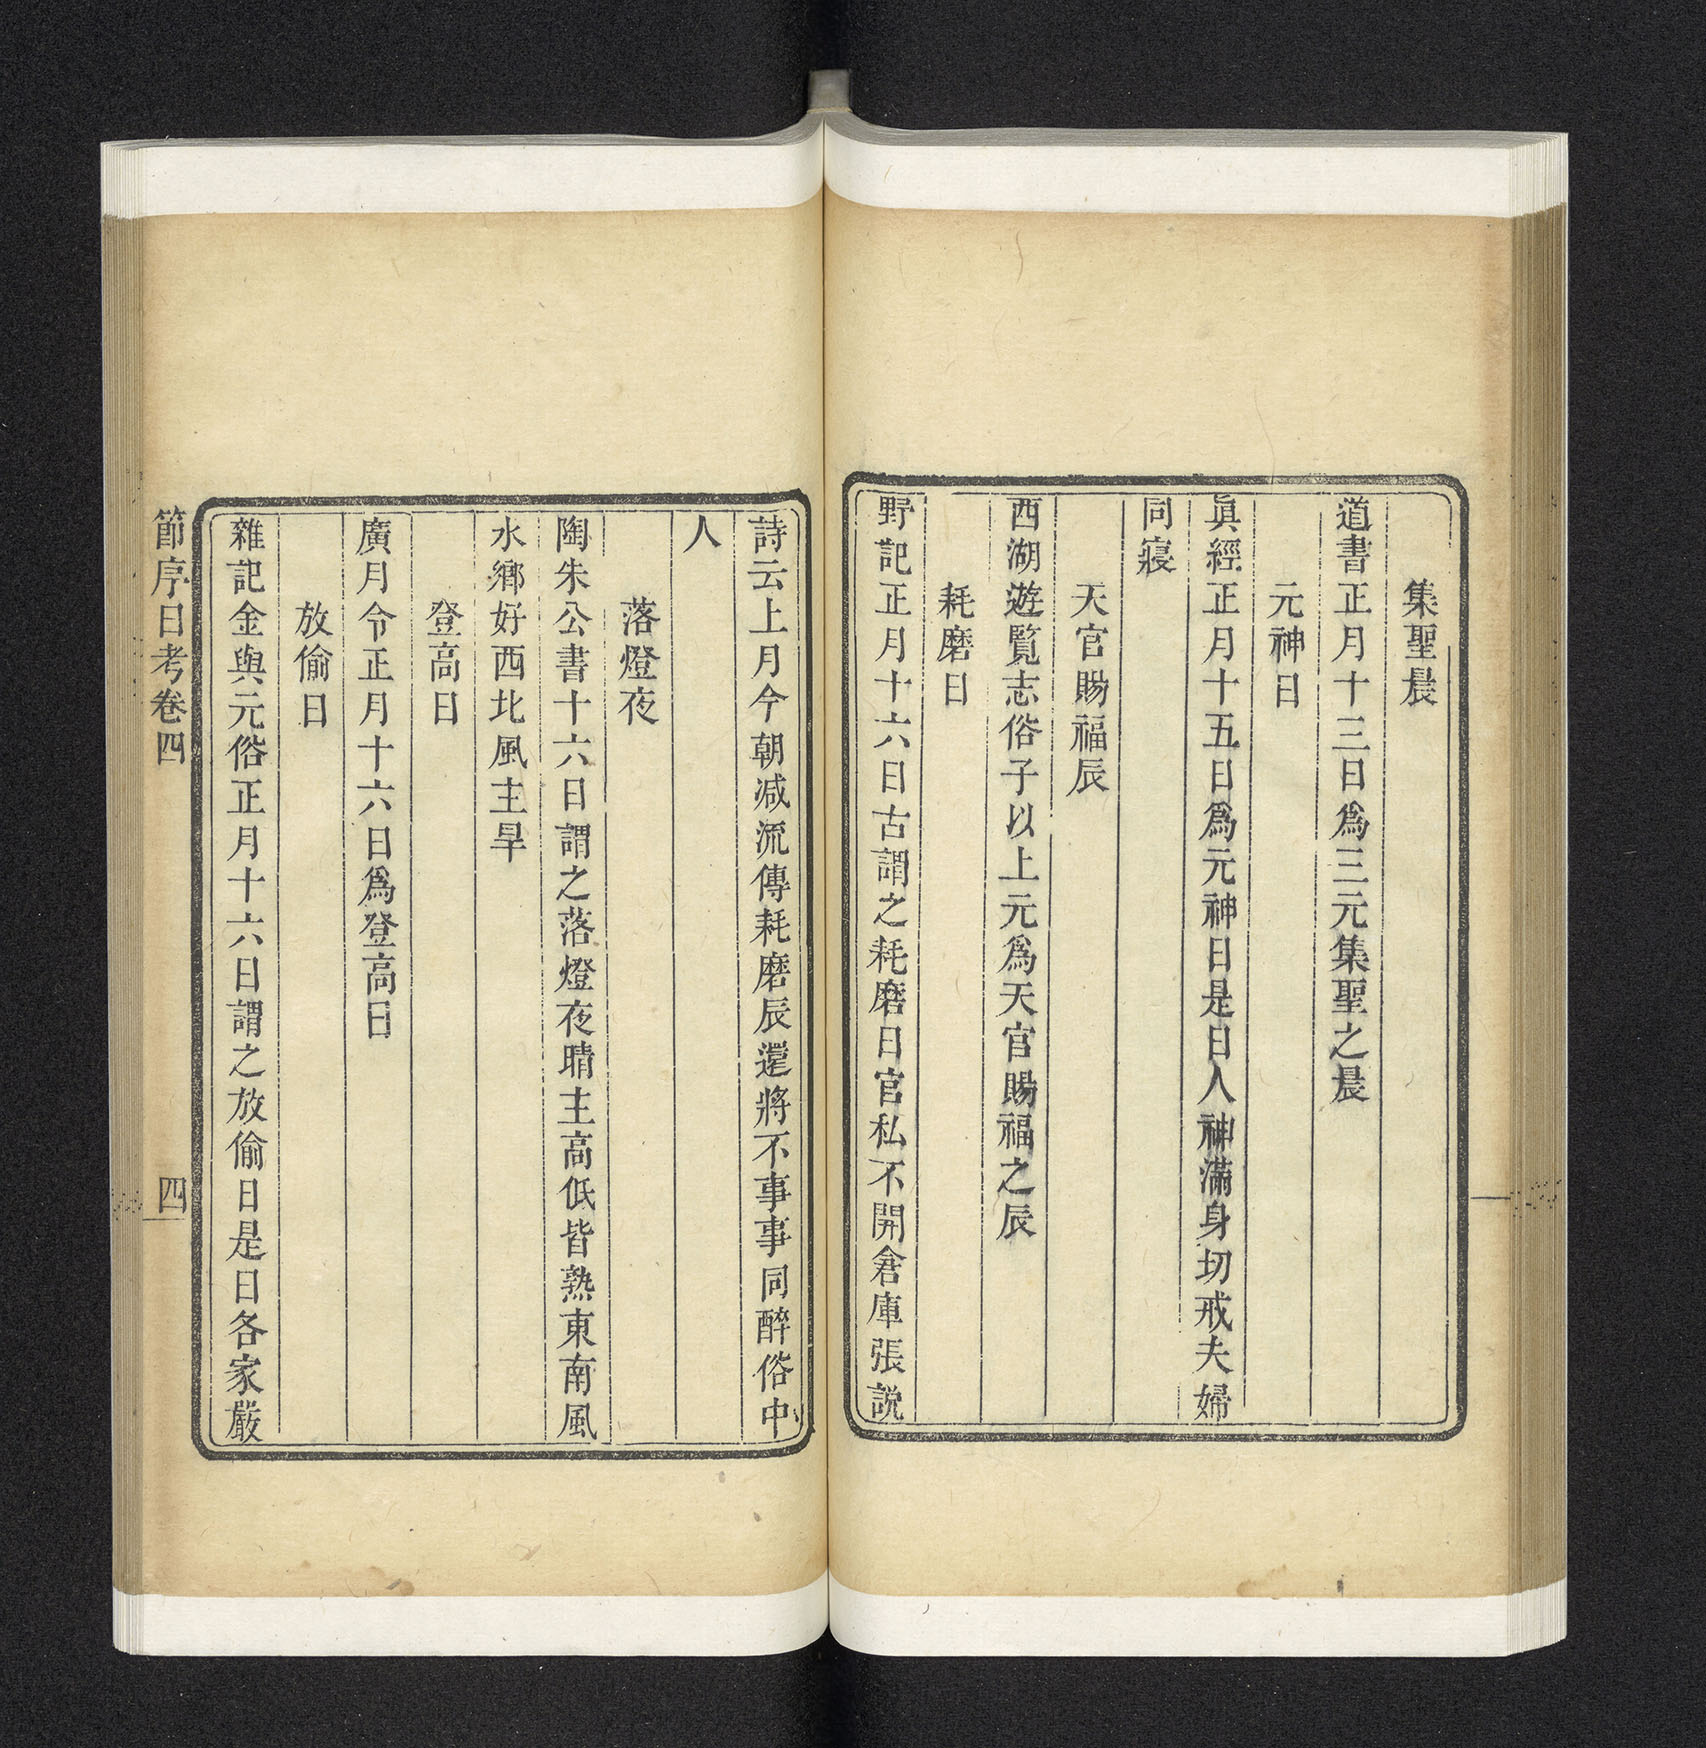 集聖晨
道書正月十三日爲三元集聖之晨
元神日
眞經正月十五日爲元神日是日人神滿身切戒夫婦
同寢
天官賜福辰
西湖遊覧志俗子以上元爲天官賜福之辰
耗磨日
野記正月十六日古謂之耗磨日官私不開倉庫張説
詩云上月今朝减流傳耗磨辰還將不事事同醉俗中
人
落燈夜
陶朱公書十六日謂之落燈夜晴主高低皆熟東南風
水鄉好西北風主旱
登高日
廣月令正月十六日爲登高日
放偷日
雜記金與元俗正月十六日謂之放偷日是日各家嚴
節序日考卷四
四